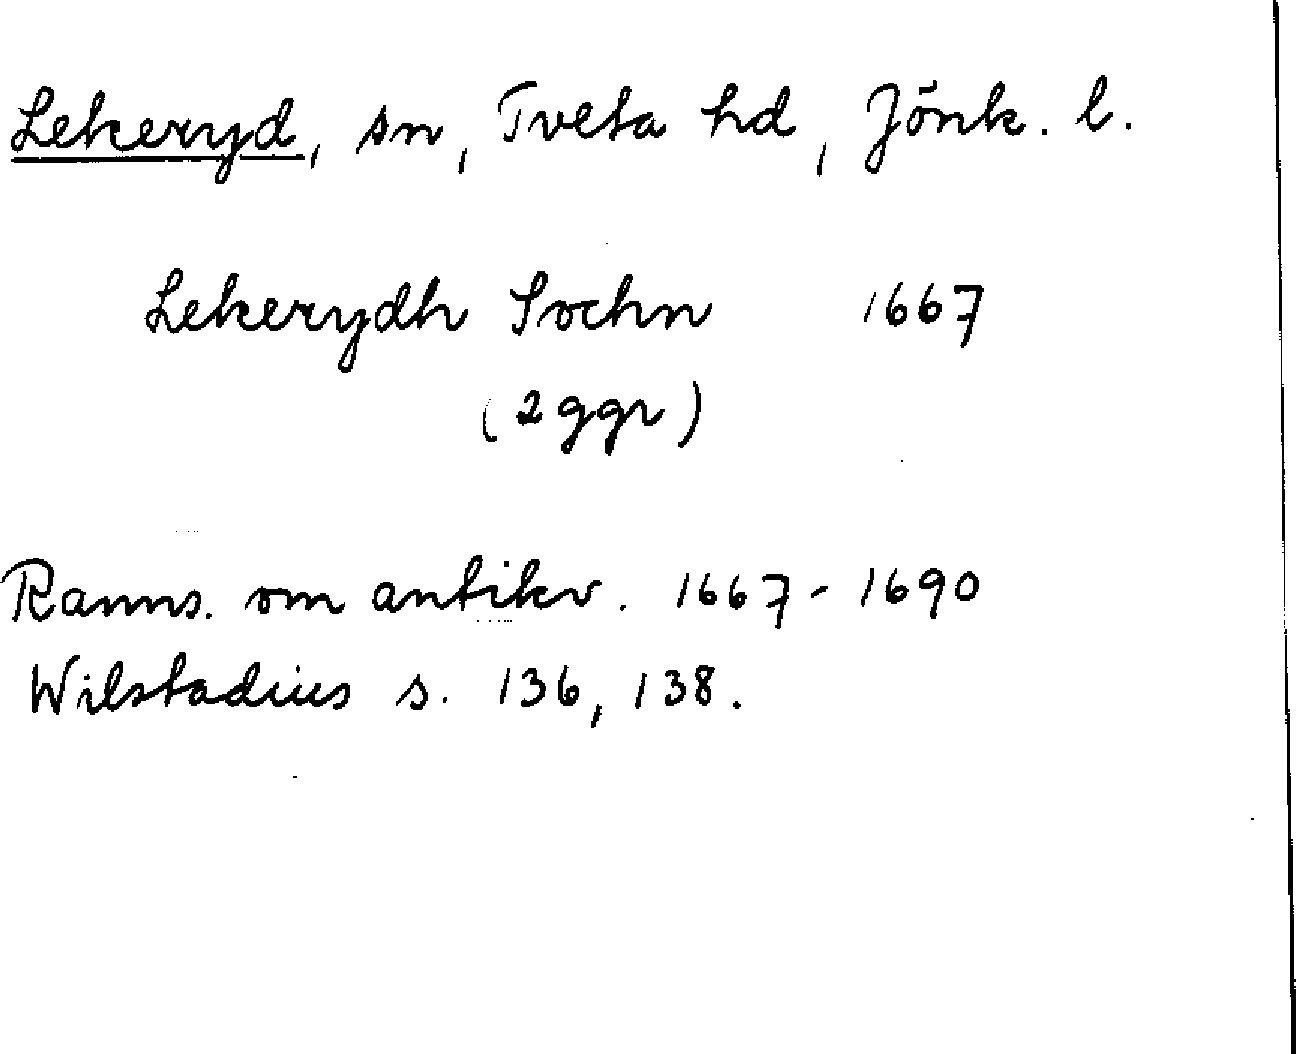 Lekeryd, sn, Tveta hd, Jönk. l.
Lekerydh Sochn 1667
(2 ggr)
Ranns. om antikv. 1667-1690
Wilstadius s. 136, 138.